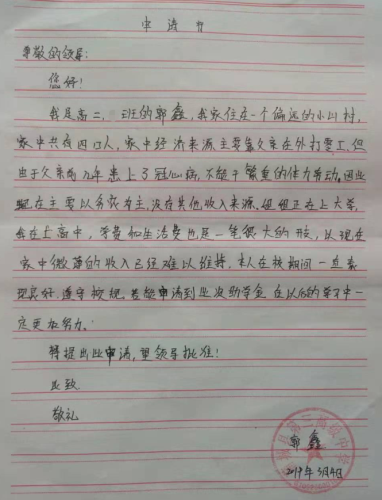 申请书
尊敬的领导:
您好!
我是高二、班的郭鑫,我家住在一个偏远的小山村,
家中共有四口人,家中经济来源主要靠父亲在外打零工,但
由于父亲前几年患上了冠心病,不能干繁重的体力劳动。因此
现在主要以务农为主,没有其他收入来源。姐姐正在上大学,
我在上高中,学费和生活费也是一笔很大的开支,以现在
家中微薄的收入已经难以维持。本人在校期间一直表
现良好,遵守校规。若能申请到此次助学金,在以后的学习中一
定更加努力。
特提出此申请,望领导批准!
此致
敬礼
郭鑫
2019年3月4日